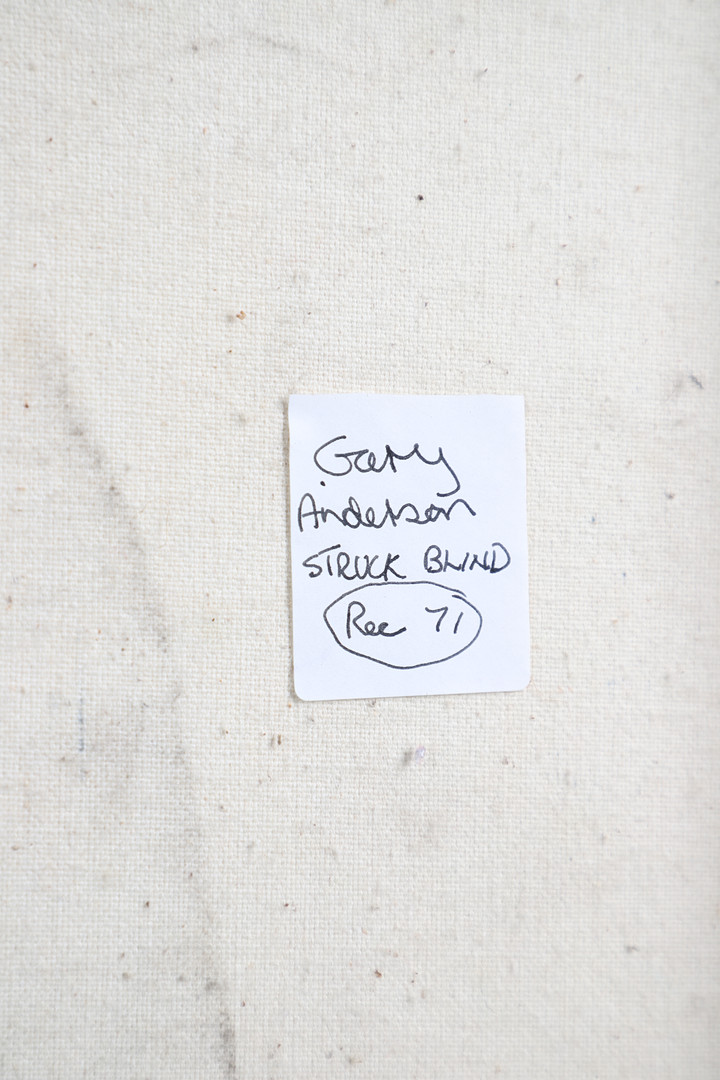 Gary
Anderson
STRUCK BLIND
Rec 71